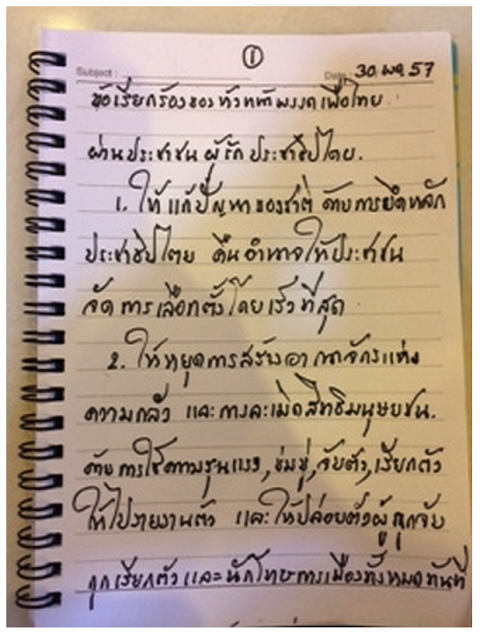 ①
Subject : Date : 30 พค 57
ข้อเรียกร้องของหัวหน้าพรรคเพื่อไทย
ผ่านประชาชน ผู้รักประชาธิปไตย.
1. ให้แก้ปัญหาของชาติ ด้วยการยึดหลัก
ประชาธิปไตย คืนอำนาจให้ประชาชน
จัดการเลือกตั้งโดยเร็วที่สุด
2. ให้หยุดการสร้างอาณาจักรแห่ง
ความกลัว และการละเมิดสิทธิมนุษยชน.
ด้วยการใช้ความรุนแรง, ข่มขู่, จับตัว, เรียกตัว
ให้ไปรายงานตัว และให้ปล่อยตัวผู้ถูกจับ
ถูกเรียกตัว และนักโทษการเมืองทั้งหมดทันที